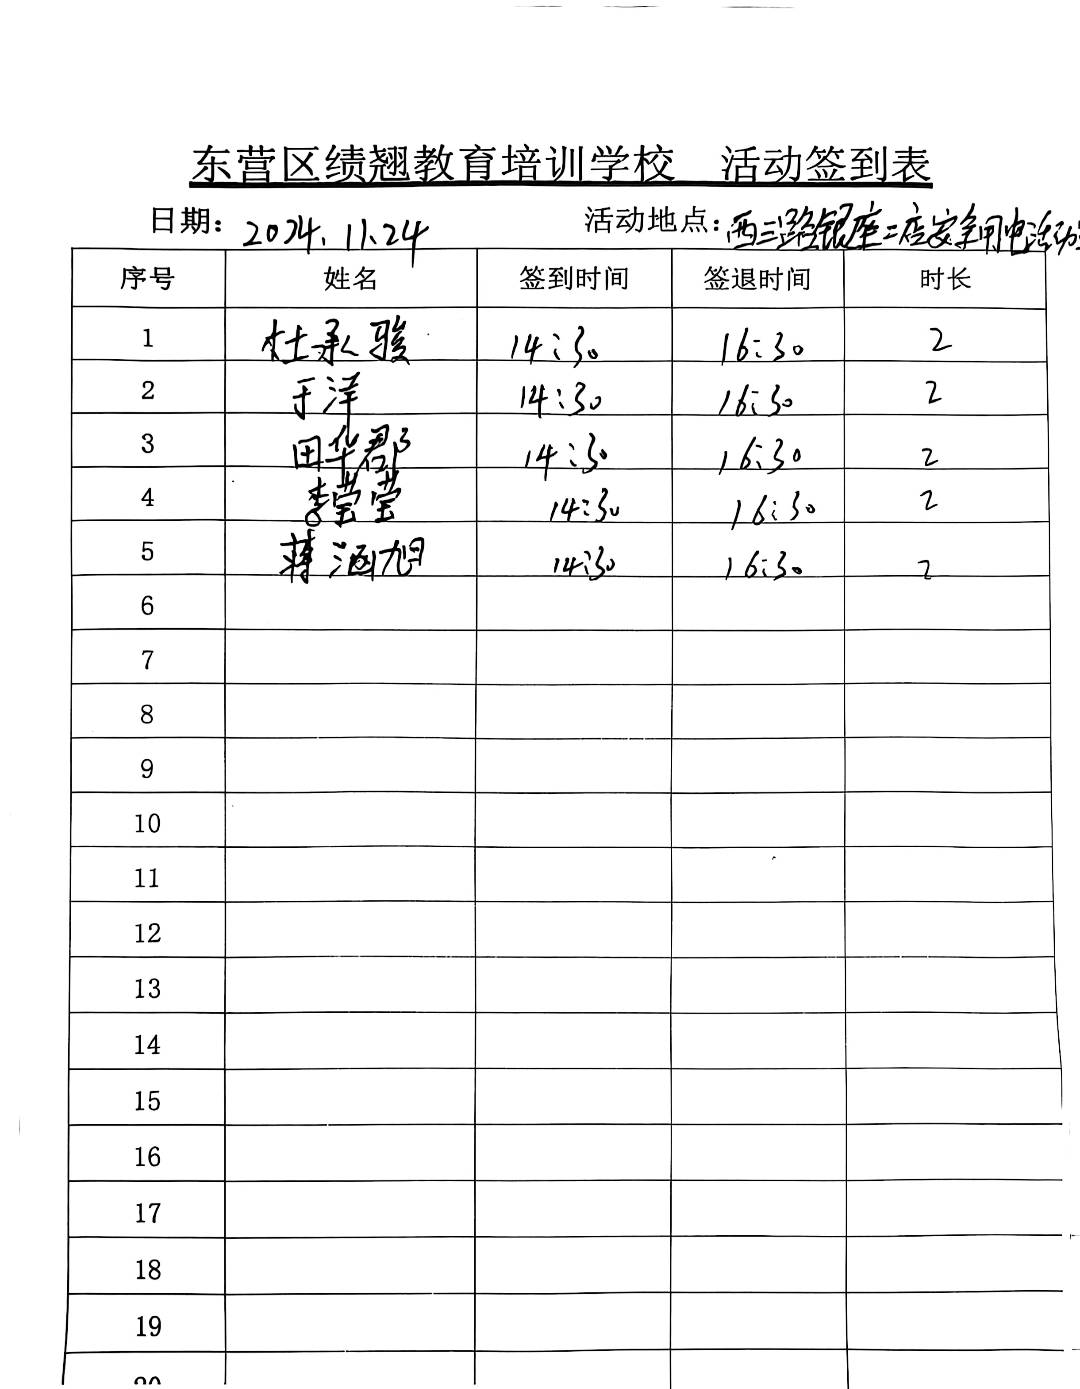 东营区绩翘教育培训学校 活动签到表
日期: 2024.11.24 活动地点: 西三路银座二店安全用电活动
序号 姓名 签到时间 签退时间 时长
1 杜承骏 14:30 16:30 2
2 于洋 14:30 16:30 2
3 田华郡 14:30 16:30 2
4 李莹莹 14:30 16:30 2
5 蒋涵旭 14:30 16:30 2
6
7
8
9
10
11
12
13
14
15
16
17
18
19
20